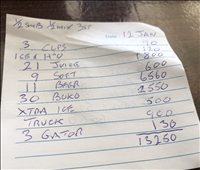 1/2 SUB 1/2 MIX 3ST
12 JAN
3 CUPS 90
ICE & H2O 130
21 JUICE 1800
9 SOFT 600
11 BEER 6560
30 BUKO 2550
XTRA ICE 500
TRUCK 900
3 GATOR 130
13250